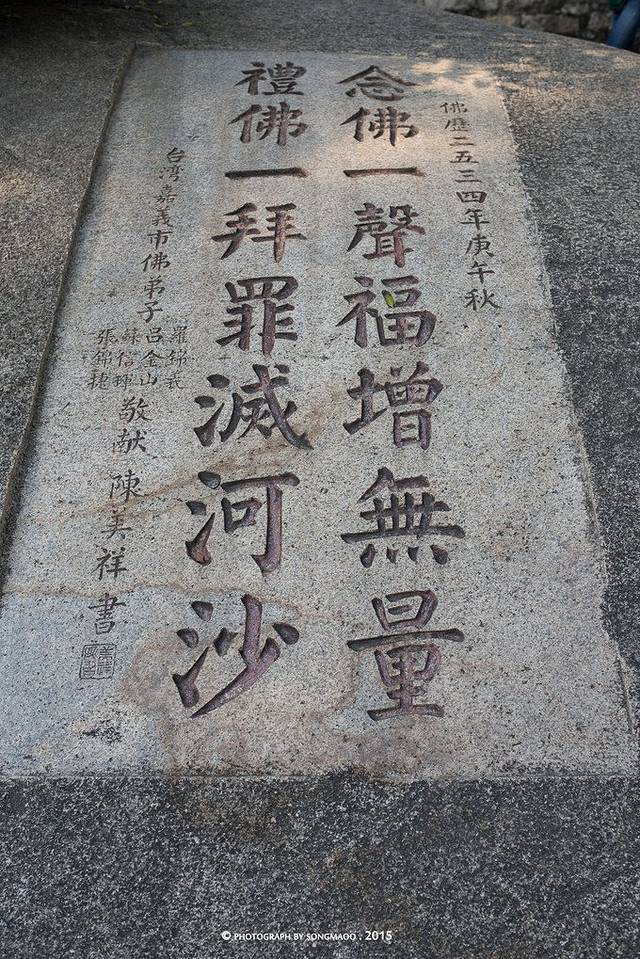 佛歷二五三四年庚午秋
念佛一聲福增無量
禮佛一拜罪滅河沙
台湾嘉義市佛弟子
羅錦
呂金山
蘇信
張錦捷
敬献
陳美祥書
© PHOTOGRAPH BY SONGMAOO . 2015